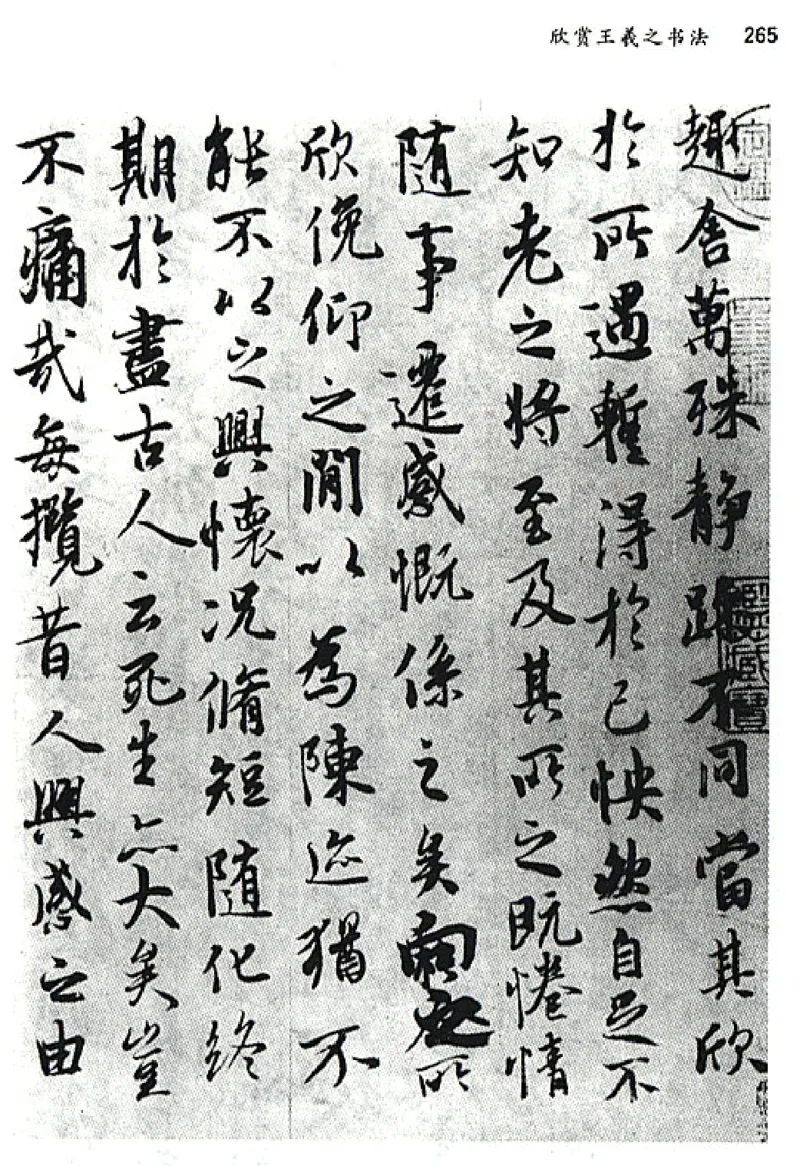 欣赏王羲之书法 265
趣舍萬殊静躁不同當其欣
於所遇暫得於己怏然自足不
知老之將至及其所之既惓情
随事遷感慨係之矣向之所
欣俛仰之閒以為陳迹猶不
能不以之興懷況脩短随化終
期於盡古人云死生亦大矣豈
不痛哉每攬昔人興感之由